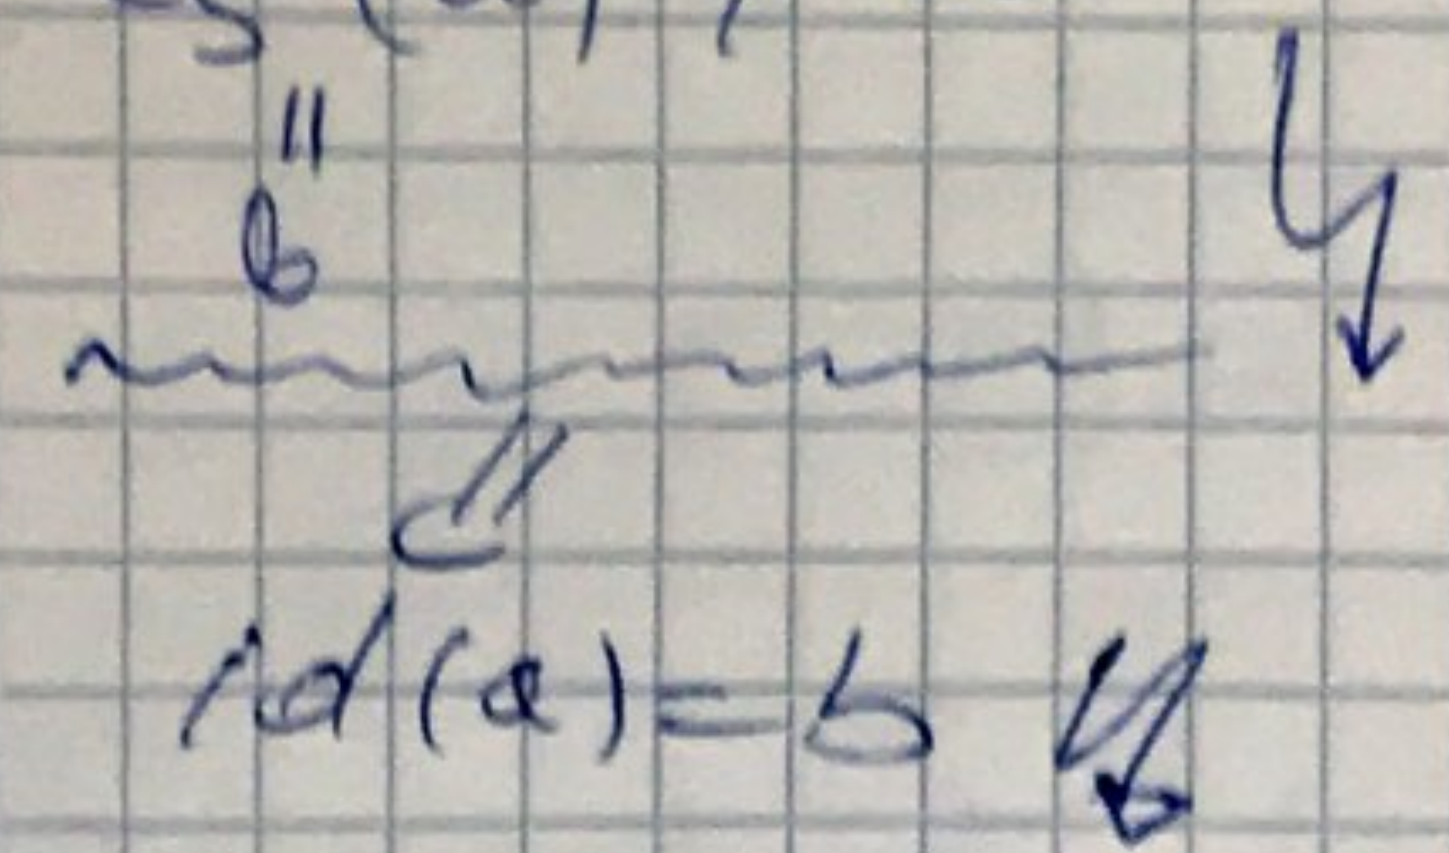 ||
b
//
id(a)=b ↯